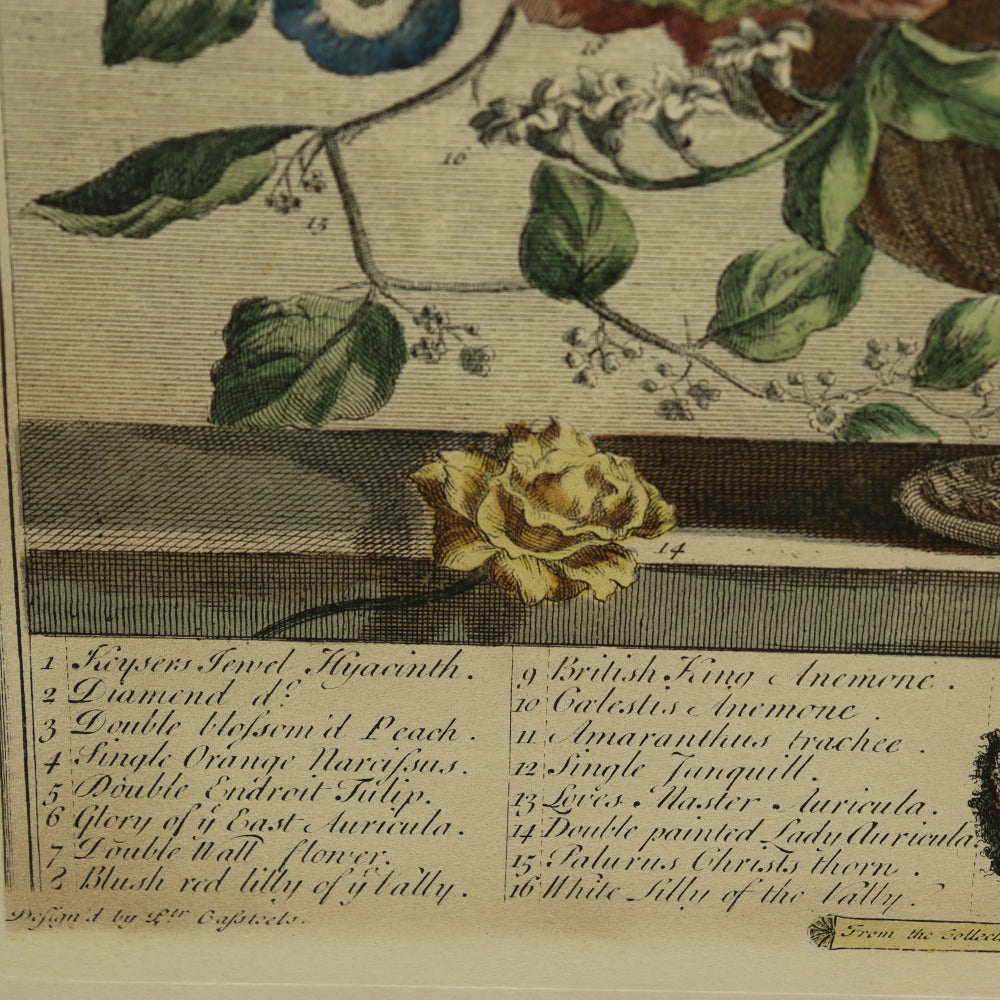 18
16
15
14
1 Keysers Jewel Hyacinth.
2 Diamend d.º
3 Double bloſsom'd Peach.
4 Single Orange Narciſsus.
5 Double Endroit Tulip.
6 Glory of yͤ East Auricula.
7 Double Wall flower.
8 Blush red lilly of yͤ Vally.
9 British King Anemone.
10 Cælestis Anemone.
11 Amaranthus trachee.
12 Single Junquill.
13 Loves Master Auricula.
14 Double painted Lady Auricula.
15 Palurus Christs thorn.
16 White Lilly of the Vally.
Design'd by Pᵗʳ Caſteels.
From the Collecti